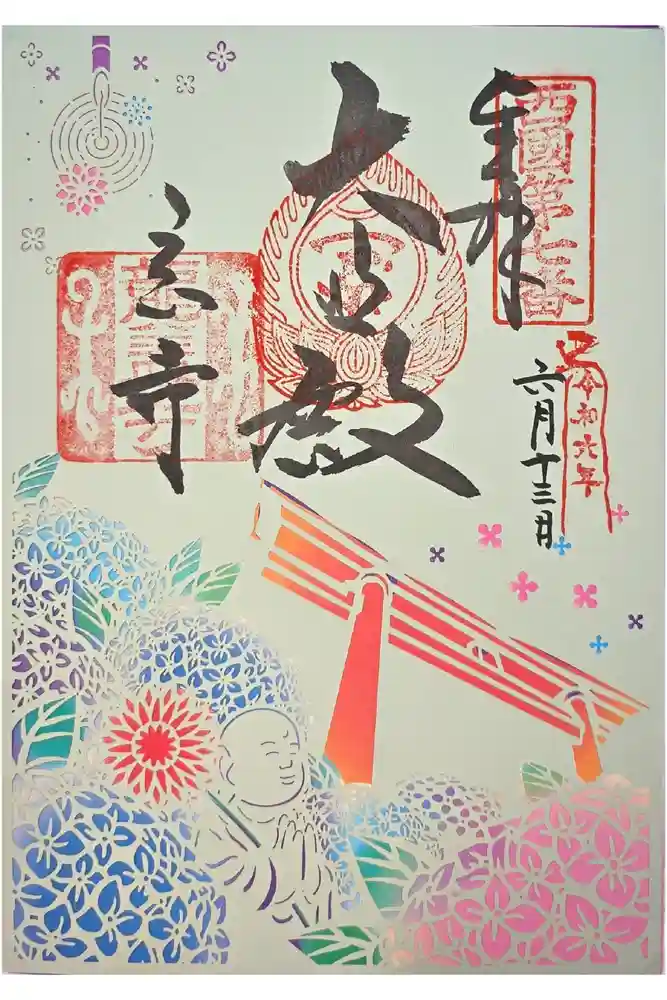 西國第七番
奉拝
令和六年
六月十三日
大悲殿
龍蓋寺
岡寺